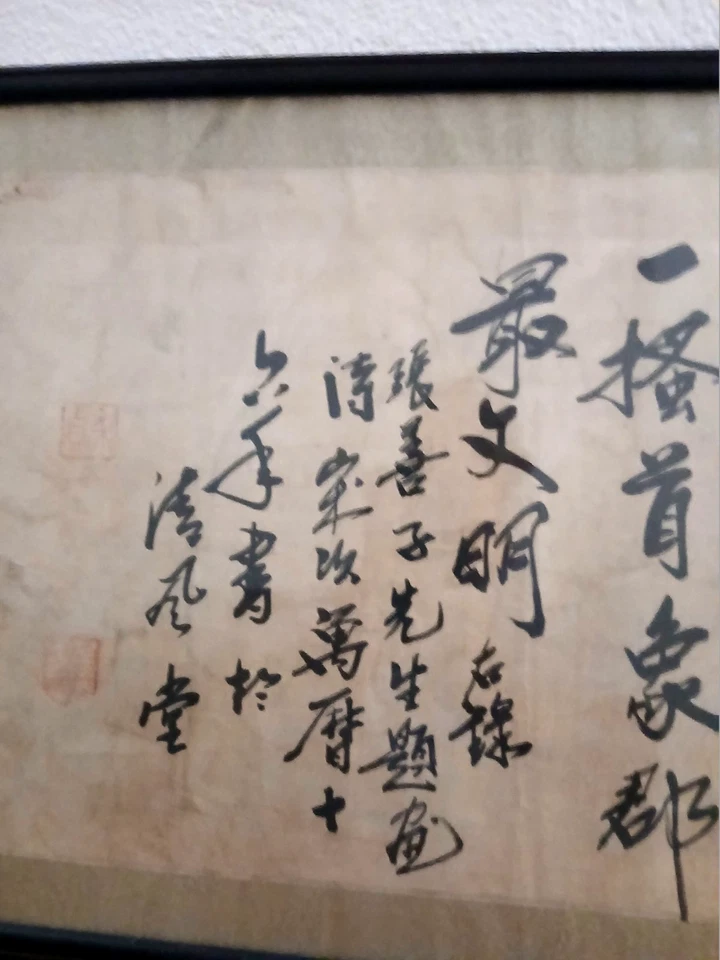 一搔首象郡
最文明右錄
張善子先生題画
詩歲次萬曆十
六年書於
清風堂